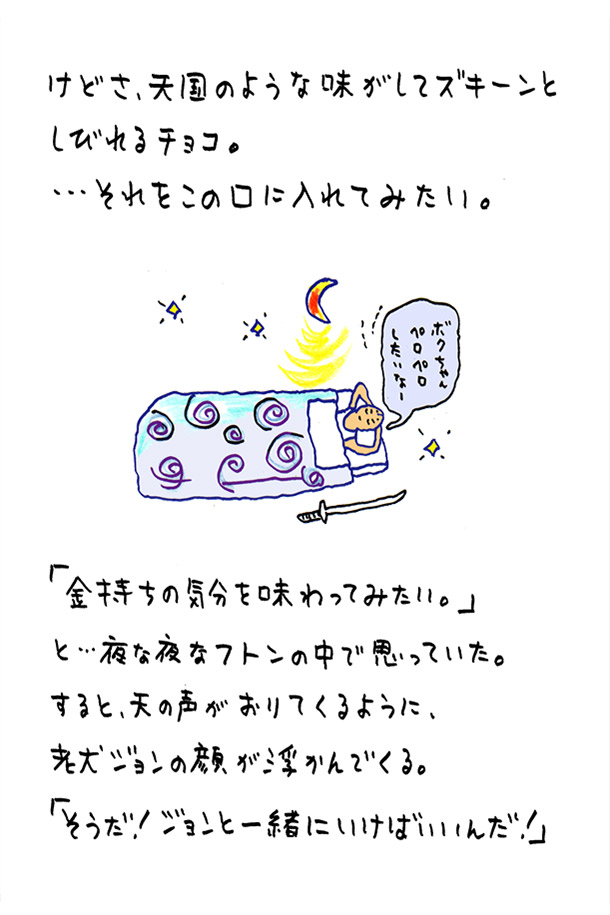 けどさ、天国のような味がしてズキーンと
しびれるチョコ。
…それをこの口に入れてみたい。
ボクちゃん
ペロペロ
したいなー
「金持ちの気分を味わってみたい。」
と…夜な夜なフトンの中で思っていた。
すると、天の声がおりてくるように、
老犬ジョンの顔が浮かんでくる。
「そうだ!ジョンと一緒にいけばいいんだ!」